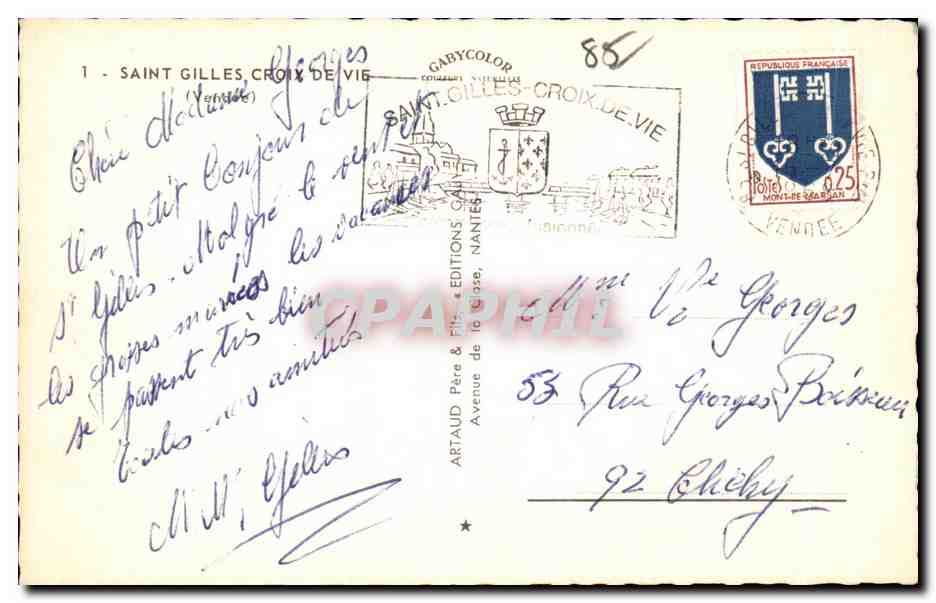 1 - SAINT GILLES CROIX DE VIE
(Vendée)
GABYCOLOR
88
SAINT.GILLES-CROIX.DE.VIE
REPUBLIQUE FRANÇAISE
POSTES
0,25
MONT-DE-MARSAN
VENDEE
Chère Madame Georges
Un petit bonjour de
St Gilles. Malgré le vent et
les grosses marées les vacances
se passent très bien
toutes nos amitiés
M M Gilles
ARTAUD Père & Fils, « EDITIONS GABY »
Avenue de la Close, NANTES
CPAPHIL
Mme Ve Georges
53 Rue Georges Boisseau
92 Clichy